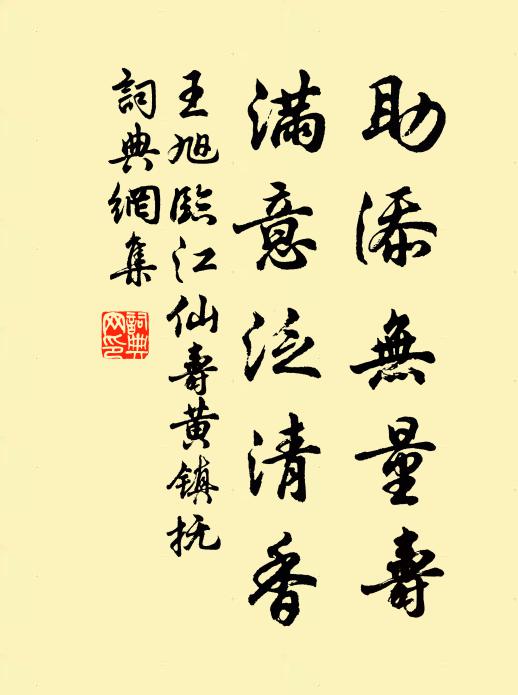 助添無量壽
滿意泛清香
王旭臨江仙壽黄镇抚
詞典網集
詞典網印